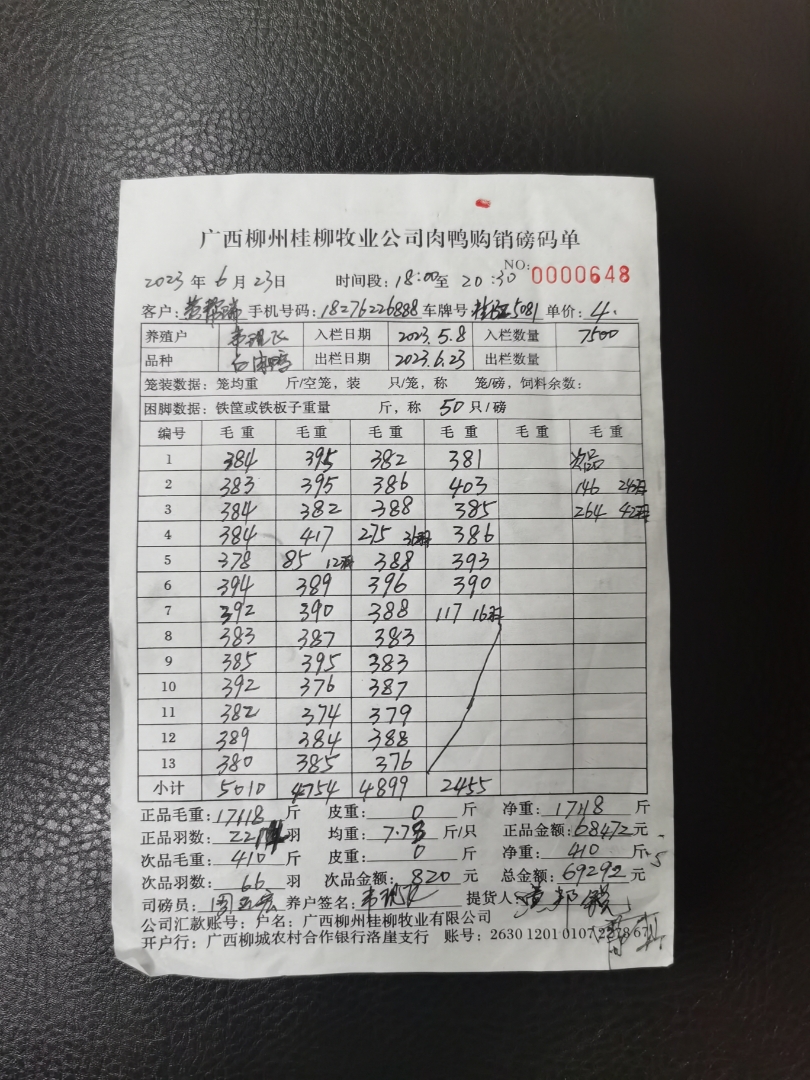 广西柳州桂柳牧业公司肉鸭购销磅码单
NO: 0000648
2023 年 6 月 23 日 时间段: 18:00 至 20:30
客户: 手机号码: 18276226888 车牌号 5081 单价: 4.
养殖户 入栏日期 2023.5.8 入栏数量 7500
品种 白肉鸭 出栏日期 2023.6.23 出栏数量
笼装数据: 笼均重 斤/空笼, 装 只/笼, 称 笼/磅, 饲料余数:
困脚数据: 铁筐或铁板子重量 斤, 称 50 只/磅
编号 毛重 毛重 毛重 毛重 毛重 毛重
1 384 395 382 381 次品
2 383 395 386 403 146 24羽
3 384 382 388 385 264 42羽
4 384 417 275 36羽 386
5 378 85 12羽 388 393
6 394 389 396 390
7 392 390 388 117 16羽
8 383 387 383
9 385 395 383
10 392 376 387
11 382 374 379
12 389 384 388
13 380 385 376
小计 5010 4754 4899 2455
正品毛重: 17118 斤 皮重: 0 斤 净重: 17118 斤
正品羽数: 羽 均重: 斤/只 正品金额: 68472 元
次品毛重: 410 斤 皮重: 0 斤 净重: 410 斤
次品羽数: 66 羽 次品金额: 820 元 总金额: 69292 元
司磅员: 养户签名: 提货人:
公司汇款账号: 户名: 广西柳州桂柳牧业有限公司
开户行: 广西柳城农村合作银行洛崖支行 账号: 2630 1201 0107